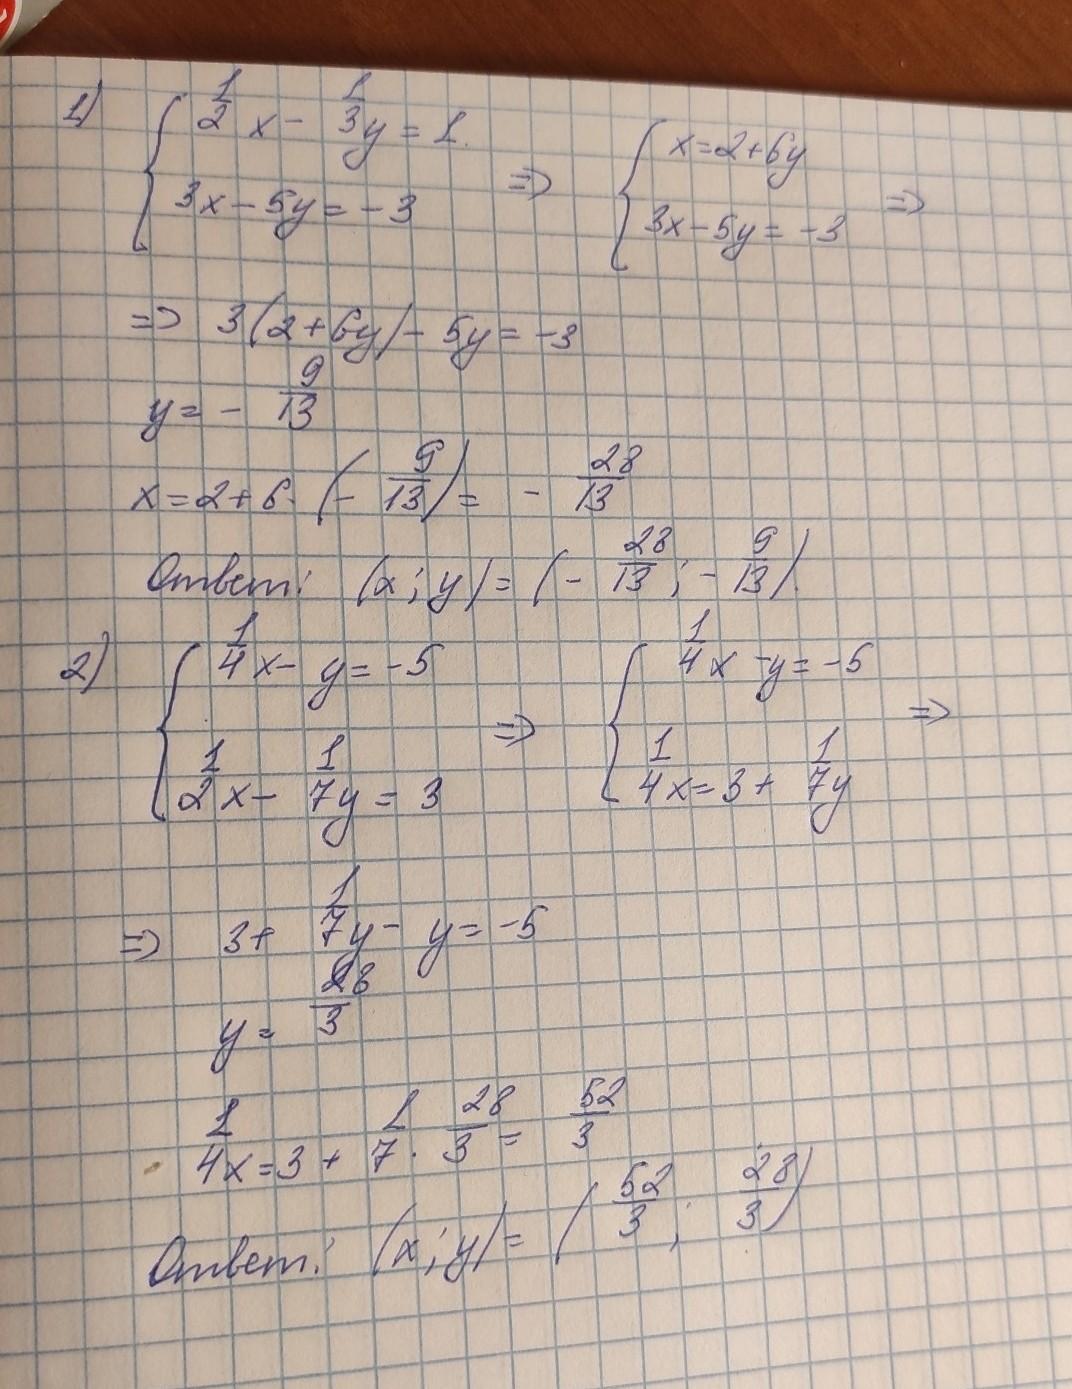 1) { 1/2 x - 1/3 y = 1. => { x = 2 + 6y
3x - 5y = -3 3x - 5y = -3 =>
=> 3(2 + 6y) - 5y = -3
y = - 9/13
x = 2 + 6 · (- 9/13) = - 28/13
Ответ: (x; y) = (- 28/13; - 9/13).
2) { 1/4 x - y = -5 => { 1/4 x - y = -5 =>
1/2 x - 1/7 y = 3 1/4 x = 3 + 1/7 y
=> 3 + 1/7 y - y = -5
y = 28/3
1/4 x = 3 + 1/7 · 28/3 = 52/3
Ответ: (x; y) = (52/3; 28/3)